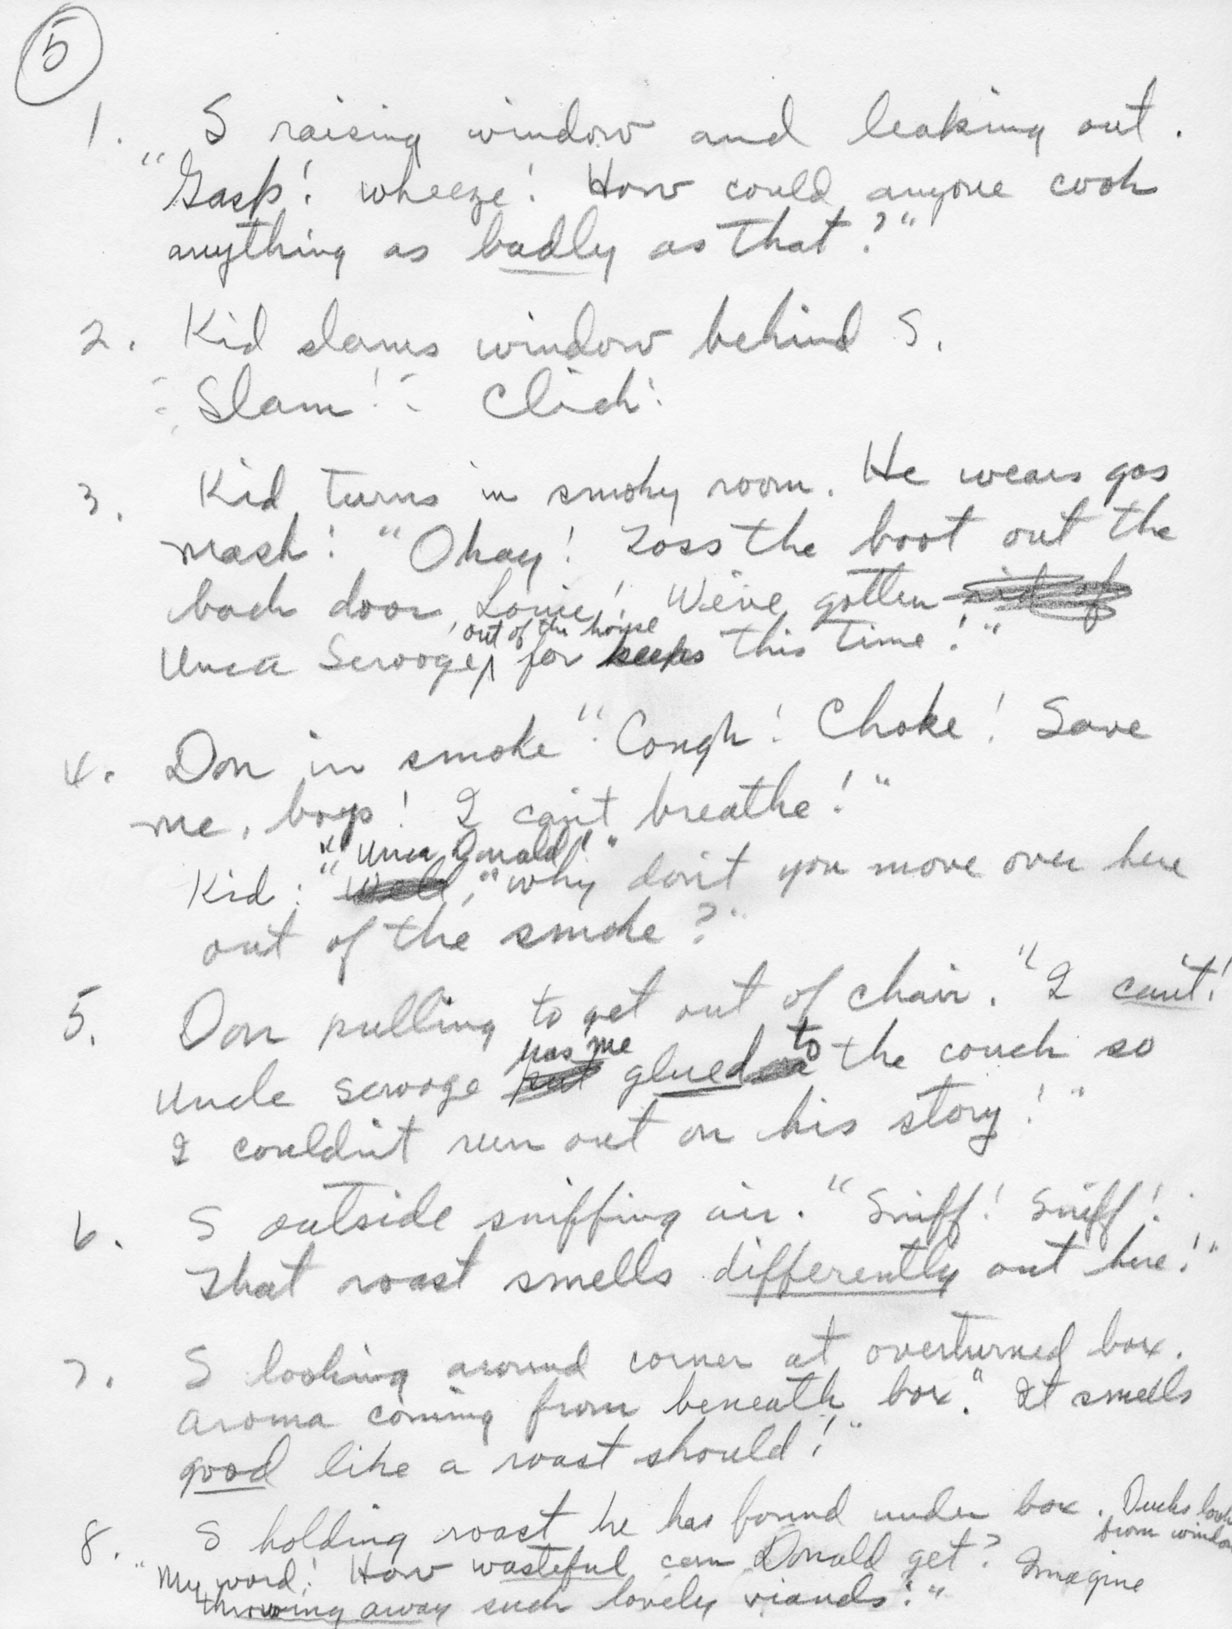 5
1. S raising window and leaking out.
"Gasp! wheeze! How could anyone cook
anything as badly as that?"
2. Kid slams window behind S.
Slam! Click!
3. Kid turns in smoky room. He wears gas
mask! "Okay! Toss the boot out the
back door, Louie! We've gotten
Unca Scrooge out of the house for keeps this time!"
4. Don in smoke "Cough! Choke! Save
me, boys! I can't breathe!"
Kid: "Unca Donald!" "why don't you move over here
out of the smoke?"
5. Don pulling to get out of chair. "I can't!
Uncle Scrooge has me glued to the couch so
I couldn't run out on his story!"
6. S outside sniffing air. "Sniff! Sniff!
That roast smells differently out here!"
7. S looking around corner at overturned box.
Aroma coming from beneath box. "It smells
good like a roast should!"
8. S holding roast he has found under box. Ducks look
from window
"My word! How wasteful can Donald get? Imagine
throwing away such lovely viands!"